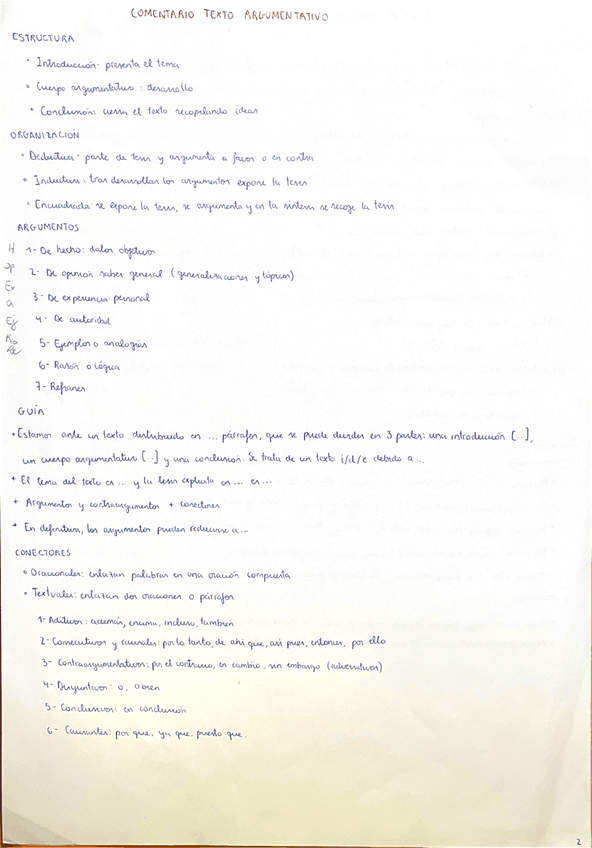 COMENTARIO TEXTO ARGUMENTATIVO
ESTRUCTURA
• Introducción: presenta el tema
• Cuerpo argumentativo: desarrollo
• Conclusión: cierra el texto recopilando ideas
ORGANIZACIÓN
• Deductiva: parte de tesis y argumenta a favor o en contra
• Inductiva: tras desarrollar los argumentos expone la tesis
• Encuadrada: se expone la tesis, se argumenta y en la síntesis se recoge la tesis
ARGUMENTOS
H 1- De hecho: datos objetivos
Op 2- De opinión saber general (generalizaciones y tópicos)
Ex 3- De experiencia personal
a 4- De autoridad
Ej 5- Ejemplos o analogías
Ra 6- Razón o lógica
Re 7- Refranes
GUÍA
• Estamos ante un texto distribuido en ... párrafos, que se puede dividir en 3 partes: una introducción [..],
un cuerpo argumentativo [..] y una conclusión. Se trata de un texto i/d/e debido a ...
• El tema del texto es ... y la tesis explícita es ... es ...
• Argumentos y contraargumentos + conectores
• En definitiva, los argumentos pueden reducirse a ...
CONECTORES
• Oracionales: enlazan palabras en una oración compuesta
• Textuales: enlazan dos oraciones o párrafos
1- Aditivos: además, encima, incluso, también
2- Consecutivos y causales: por lo tanto, de ahí que, así pues, entonces, por ello
3- Contraargumentativos: por el contrario, en cambio, sin embargo (adversativos)
4- Disyuntivos: o, o bien
5- Conclusivos: en conclusión
6- Causantes: por que, ya que, puesto que.
2